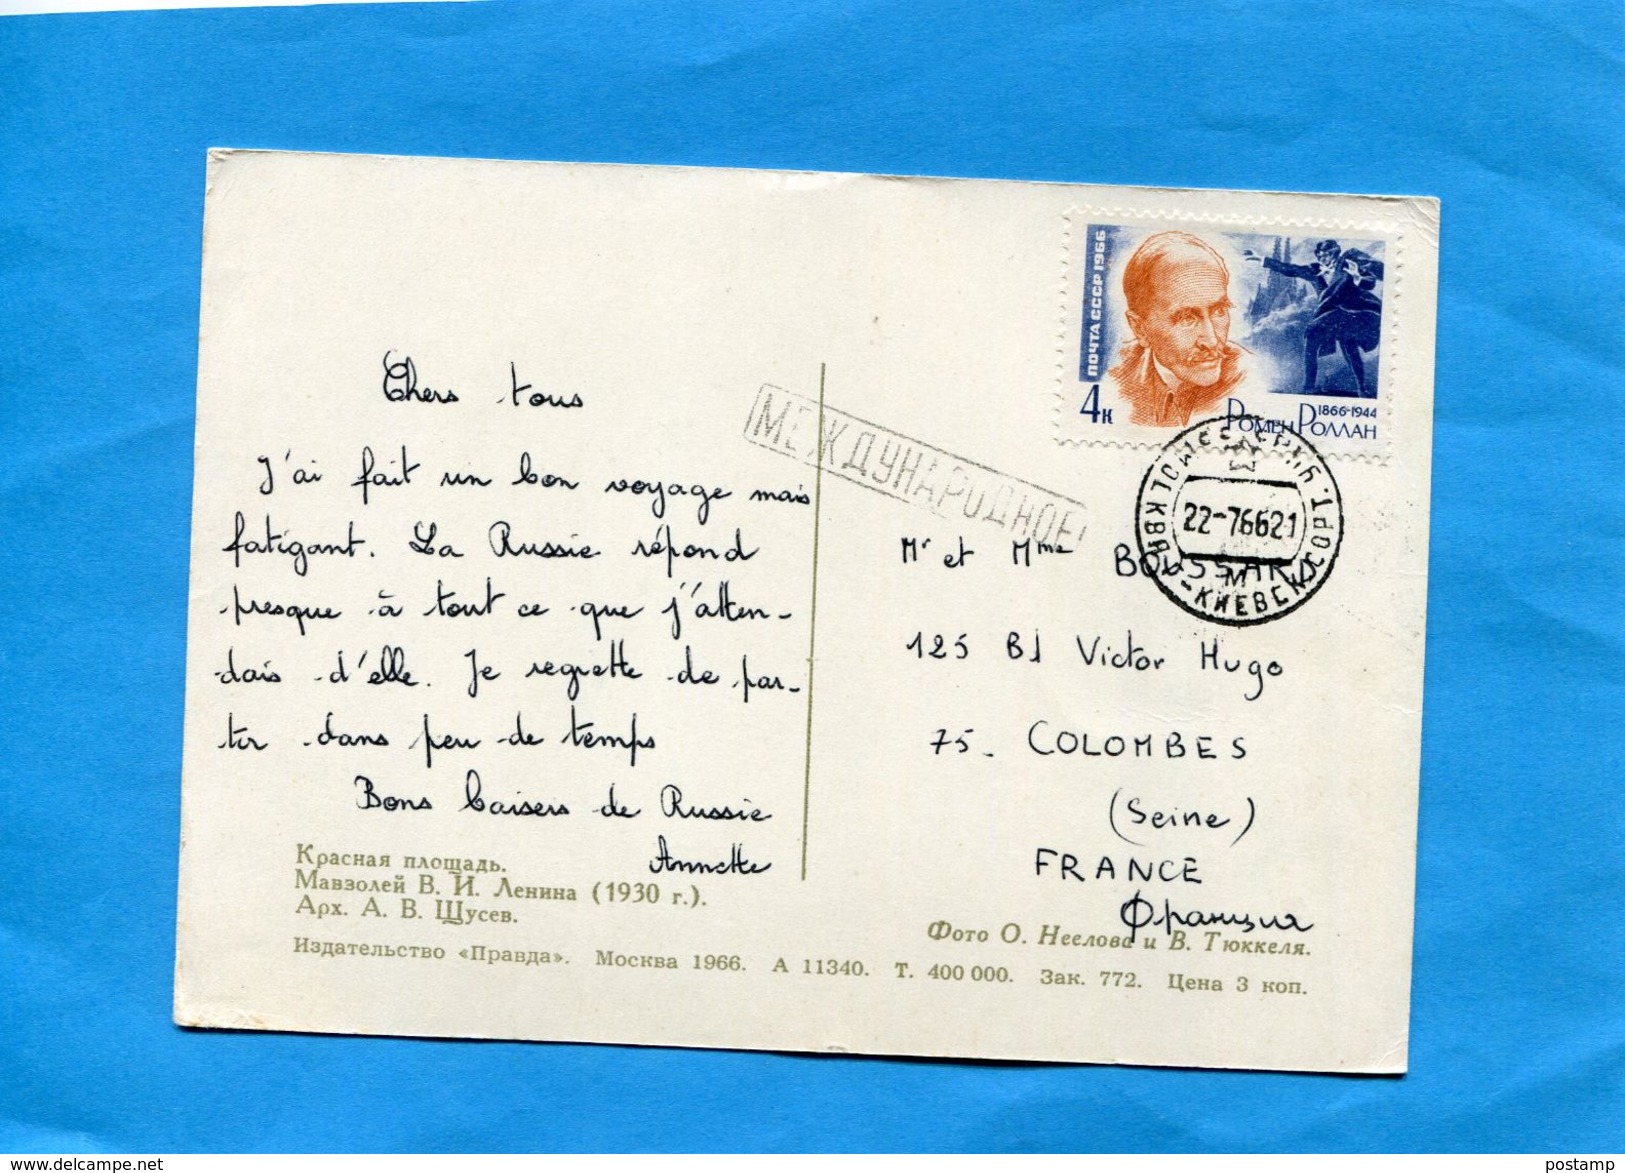 ПОЧТА СССР 1966
4к
1866-1944
РОМЕН РОЛЛАН
МЕЖДУНАРОДНОЕ
22-76621
М
Chers tous
J'ai fait un bon voyage mais
fatigant. La Russie répond
presque à tout ce que j'atten-
dais d'elle. Je regrette de par-
tir dans peu de temps
Bons baisers de Russie
Annette
Mr et Mme BOUSSARD
125 Bd Victor Hugo
75- COLOMBES
(Seine)
FRANCE
Франция
Красная площадь.
Мавзолей В. И. Ленина (1930 г.).
Арх. А. В. Щусев.
Фото О. Неелова и В. Тюккеля.
Издательство «Правда». Москва 1966. А 11340. Т. 400 000. Зак. 772. Цена 3 коп.
postamp